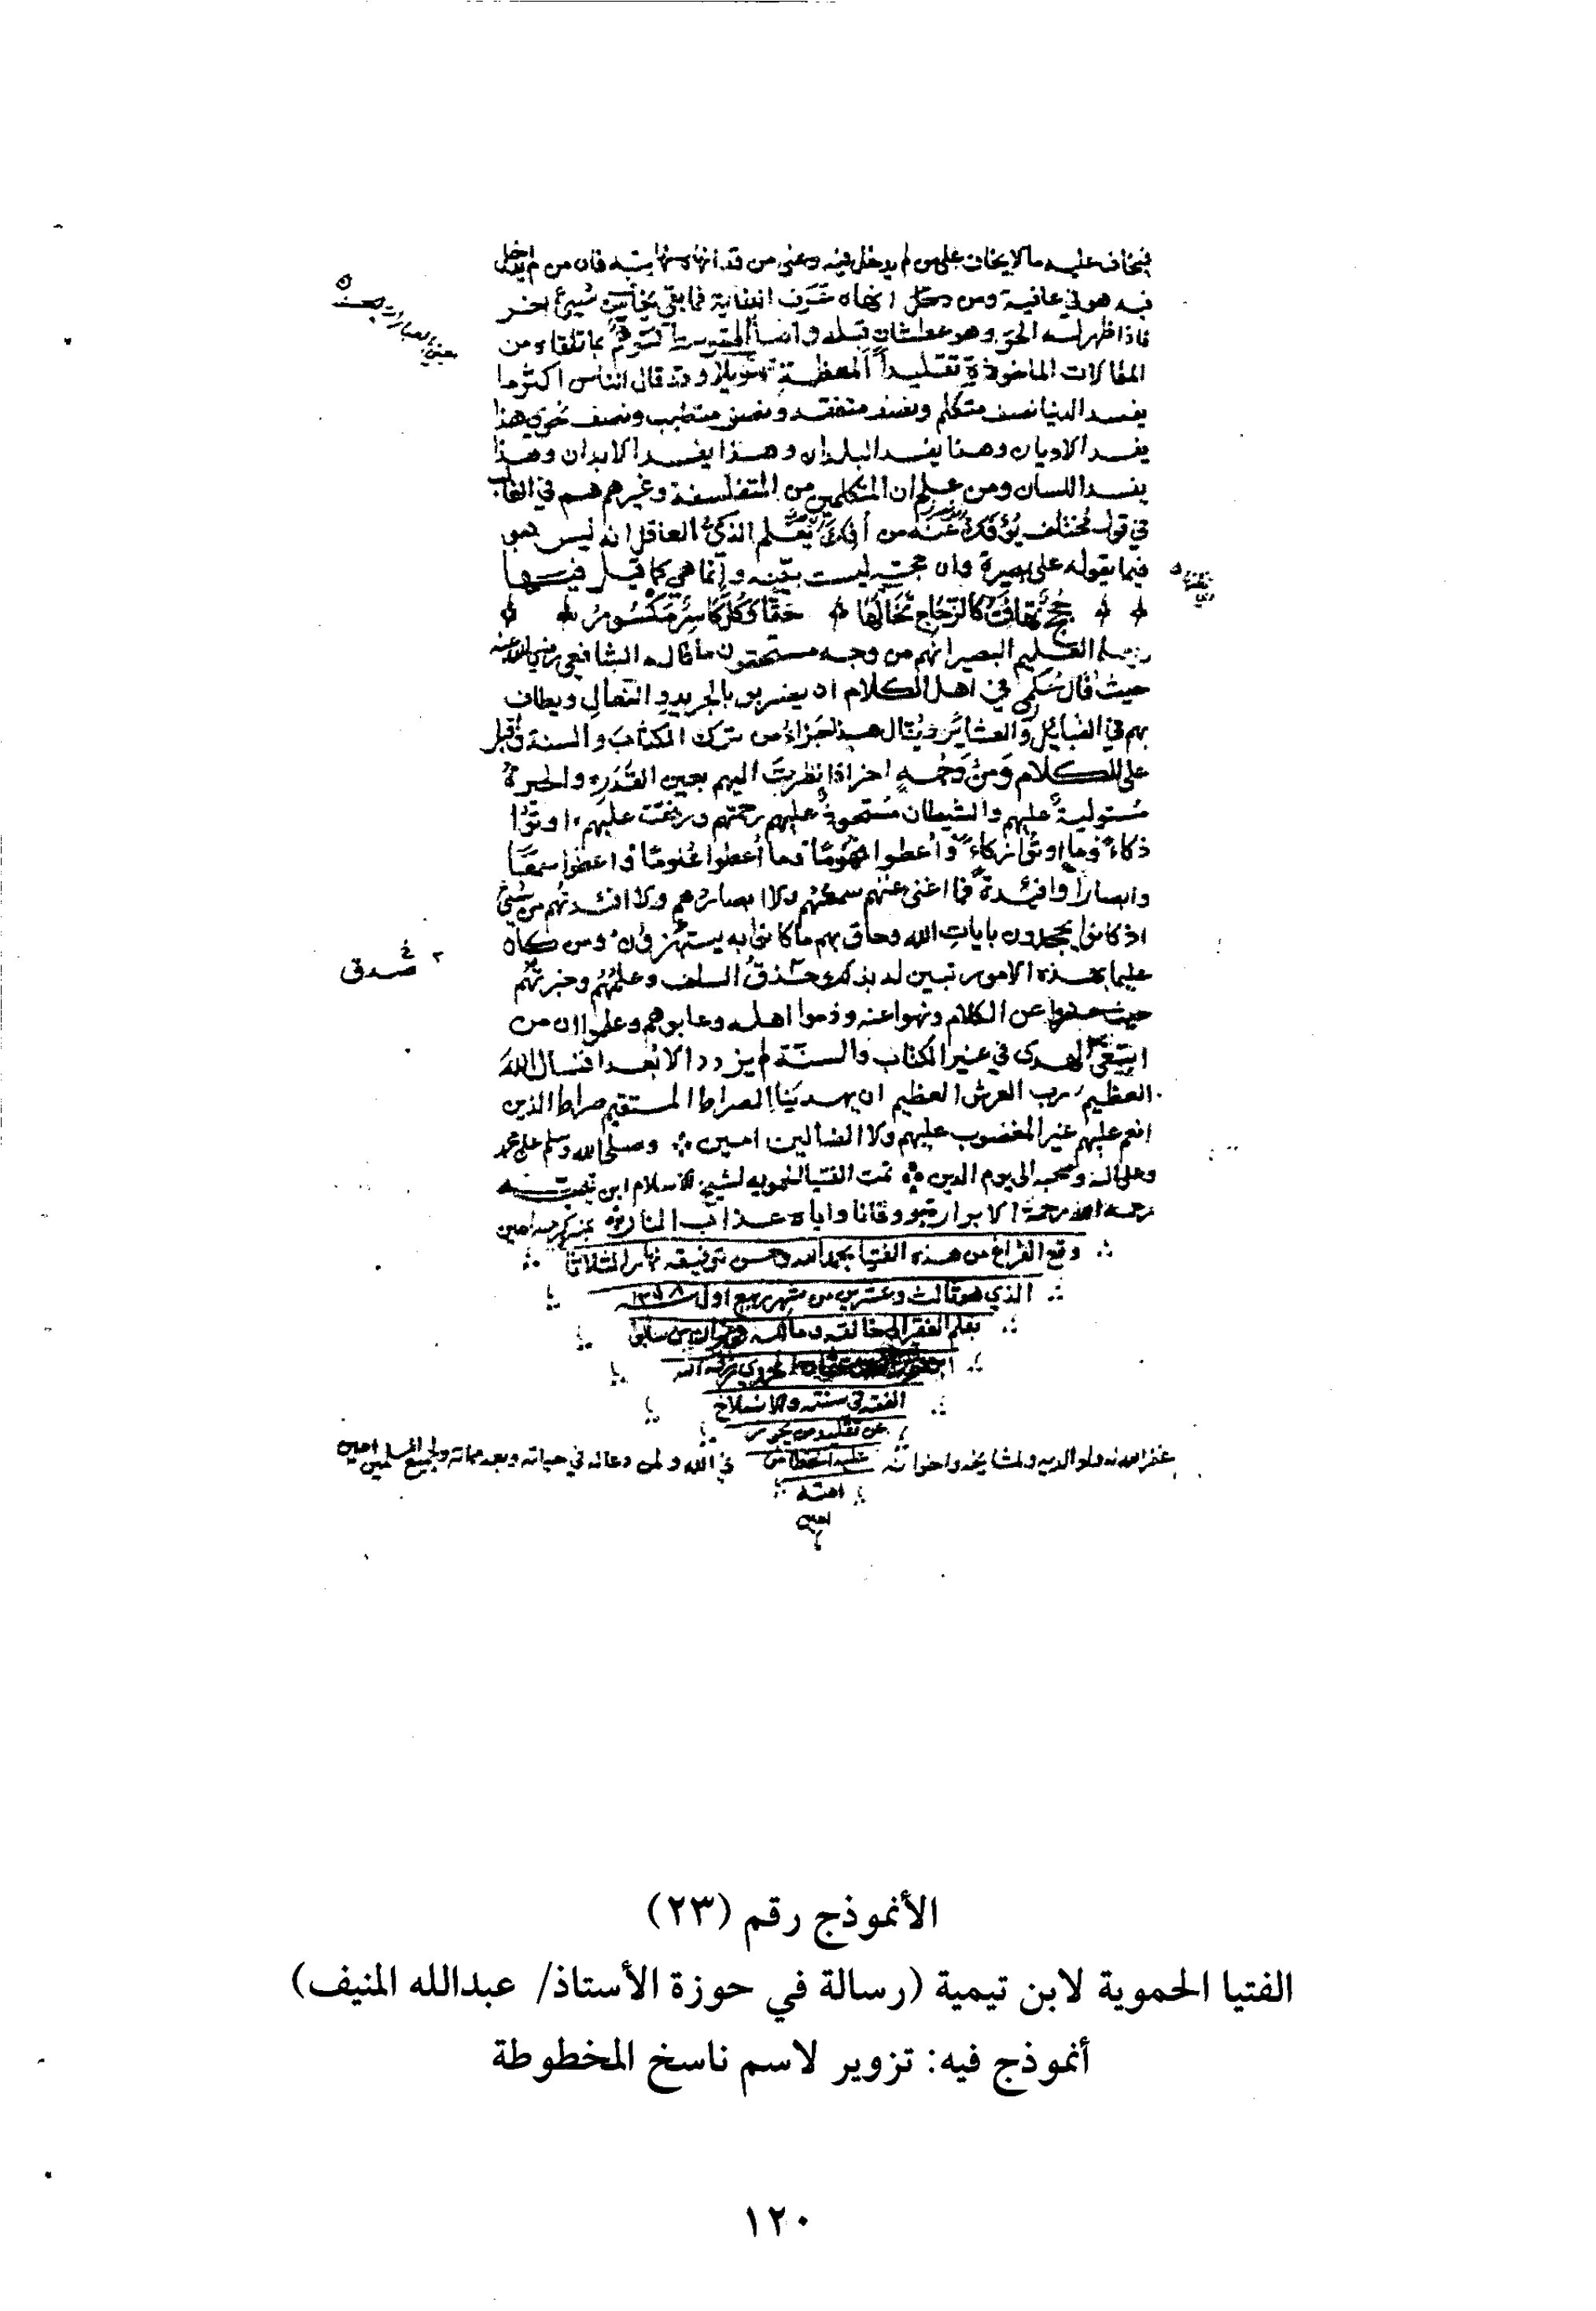 فيخاف عليه ما لا يخاف على من لم يدخل فيه وعلى من قد انهاه نهايته فان من لم يدخل
فيه هو في عافية ومن دخل انهاه عرف الغاية فما بقي يخاف من شيئ اخر
فاذا ظهر له الحق وهو عطشان قبله واما المتوسط متوهم بما تلقاه من
المقالات الماخوذة تقليدا لمعظمه وتهويلا وقد قال الناس اكثر ما
يفسد الدنيا نصف متكلم ونصف متفقه ونصف متطبب ونصف نحوي هذا
يفسد الاديان وهذا يفسد البلدان وهذا يفسد الابدان وهذا
يفسد اللسان ومن علم ان المتكلمين من المتفلسفة وغيرهم هم في الغالب
في قول مختلف يؤفك عنه من أفك يعلم الذكي العاقل انه ليس هو
فيما يقوله على بصيرة وان حجته ليست ببينه وانما هي كما قيل فيها
حجج تهافت كالزجاج تخالها حقا وكل كاسر مكسور
ويعلم العليم البصير انهم من وجه مستحقون ما قاله الشافعي رضي الله عنه
حيث قال حكمي في اهل الكلام ان يضربو بالجريد والنعال ويطاف
بهم في القبايل والعشاير ويقال هذا جزاء من ترك الكتاب والسنة واقبل
على الكلام ومن وجه اخر اذا نظرت اليهم بعين القدر والحيرة
مستولية عليهم والشيطان مستحوذ عليهم رحمتهم ورفقت عليهم اوتوا
ذكاء وما اوتوا زكاء واعطوا فهوما وما أعطوا علوما واعطوا سمعا
وابصارا وافئدة فما اغنى عنهم سمعهم ولا ابصارهم ولا افئدتهم من شيئ
اذ كانوا يجحدون بايات الله وحاق بهم ما كانوا به يستهزؤن ومن كان
عليما بهذه الامور تبين له بذلك حذق السلف وعلمهم وخبرتهم
حيث حذروا عن الكلام ونهوا عنه وذموا اهله وعابوهم وعلموا ان من
ابتغى الهدى في غير الكتاب والسنة لم يزدد الا بعدا فنسال الله
العظيم رب العرش العظيم ان يهدينا الصراط المستقيم صراط الذين
انعم عليهم غير المغضوب عليهم ولا الضالين امين وصلى الله وسلم على محمد
وعلى اله وصحبه الى يوم الدين تمت الفتيا الحمويه لشيخ الاسلام ابن تيميه
رحمه الله رحمة الابرار ووقانا واياه عذاب النار بمنه وكرمه امين
وقع الفراغ من هذه الفتيا بحمد الله وحسن توفيقه نهار الثلاثا
الذي هو ثالث وعشرين من شهر ربيع اول
بقلم الفقير الى خالقه ومالكه
الفقه في سنته والانسلاخ
عن تقليد من يجوز
غفر الله له ولوالديه ولمشايخه واخوانه عليه الخطا من في الله ولمن دعا له في حياته وبعد مماته ولجميع المسلمين امين
امته
امين
الأنموذج رقم (٢٣)
الفتيا الحموية لابن تيمية (رسالة في حوزة الأستاذ/ عبدالله المنيف)
أنموذج فيه: تزوير لاسم ناسخ المخطوطة
١٢٠